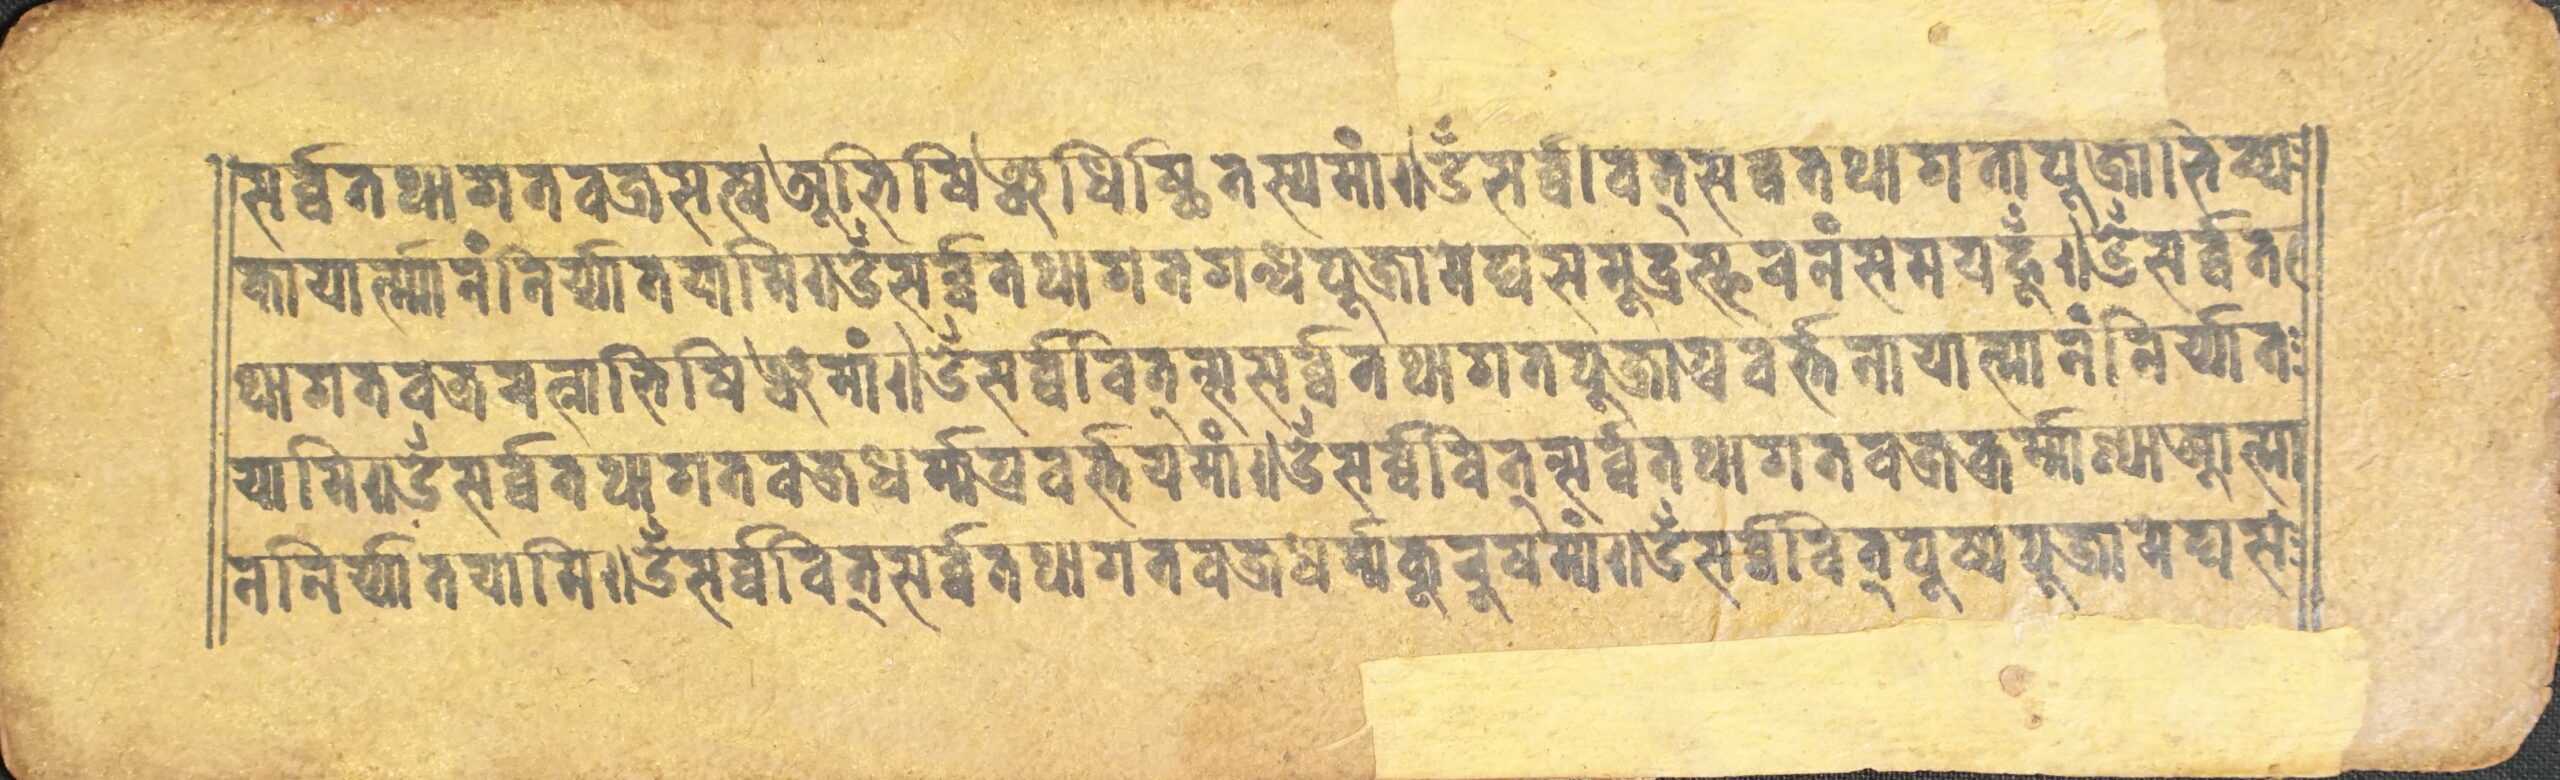 सर्व्वतथागतवज्रसत्वअभिषिञ्चधिष्ठितस्यमां॥ॐसर्व्ववित्सर्व्वतथागतापूजाभिष्या
कायार्त्मानंनिर्य्यातयामि॥ॐसर्व्वतथागतगन्धपूजामेघसमूद्रस्फरनंसमयहूँ॥ॐसर्व्वत
थागतवज्ररत्नाभिषिञ्चमां॥ॐसर्व्ववित्न्ससर्व्वतथागतपूजाप्रवर्त्तनायात्मानंनिर्य्यात
यामि॥ॐसर्व्वतथागतवज्रधर्म्मप्रवर्त्तयमां॥ॐसर्व्ववित्न्सर्व्वतथागतवज्रकर्म्माण्याआत्मा
ननिर्य्यातयामि॥ॐसर्व्ववित्सर्व्वतथागतवज्रधर्म्मकूरूषमां॥ॐसर्व्ववित्पूष्पपूजामेघस